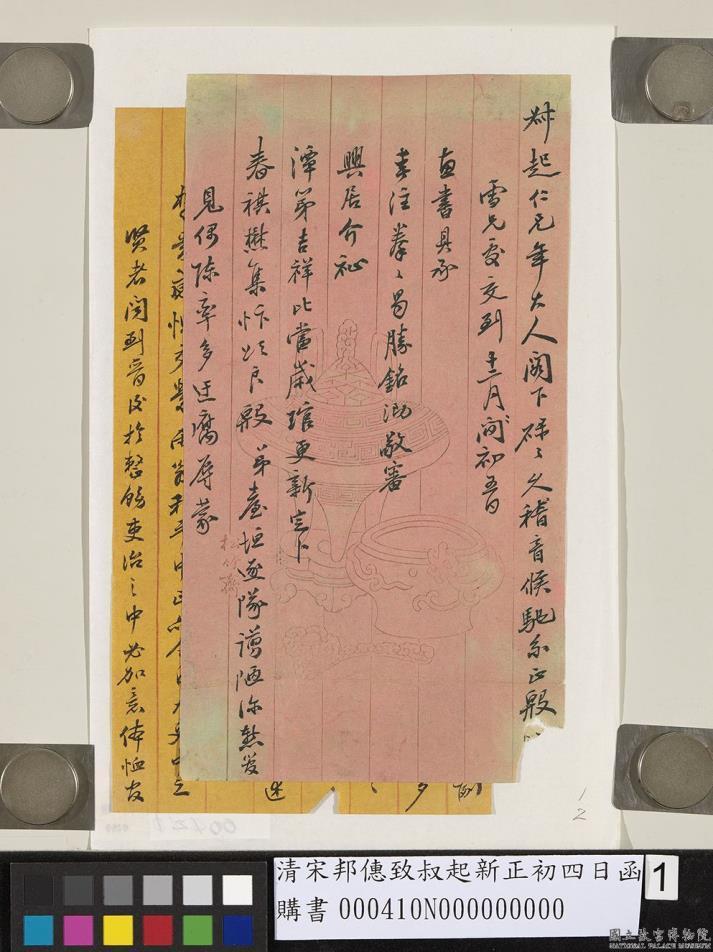 叔起仁兄年大人閣下碌々久稽音候馳系正殷
雪兄處交到十二月初五日
惠書具承
垂注拳々曷勝銘泐敬審
興居介祉
潭第吉祥比當歲琯更新定卜
春祺懋集忭頌良殷弟臺垣逐隊謭陋深慙爰
見偶陳率多迂腐辱蒙
賢者關到晉後於整飭吏治之中必加意体恤官
松竹齋
1/2
清宋邦僡致叔起新正初四日函
購書 000410N000000000
1
國立故宮博物院
NATIONAL PALACE MUSEUM